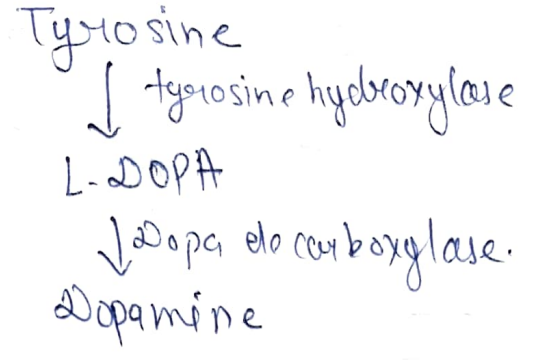 Tyrosine
tyrosine hydroxylase
L-DOPA
Dopa decarboxylase.
Dopamine